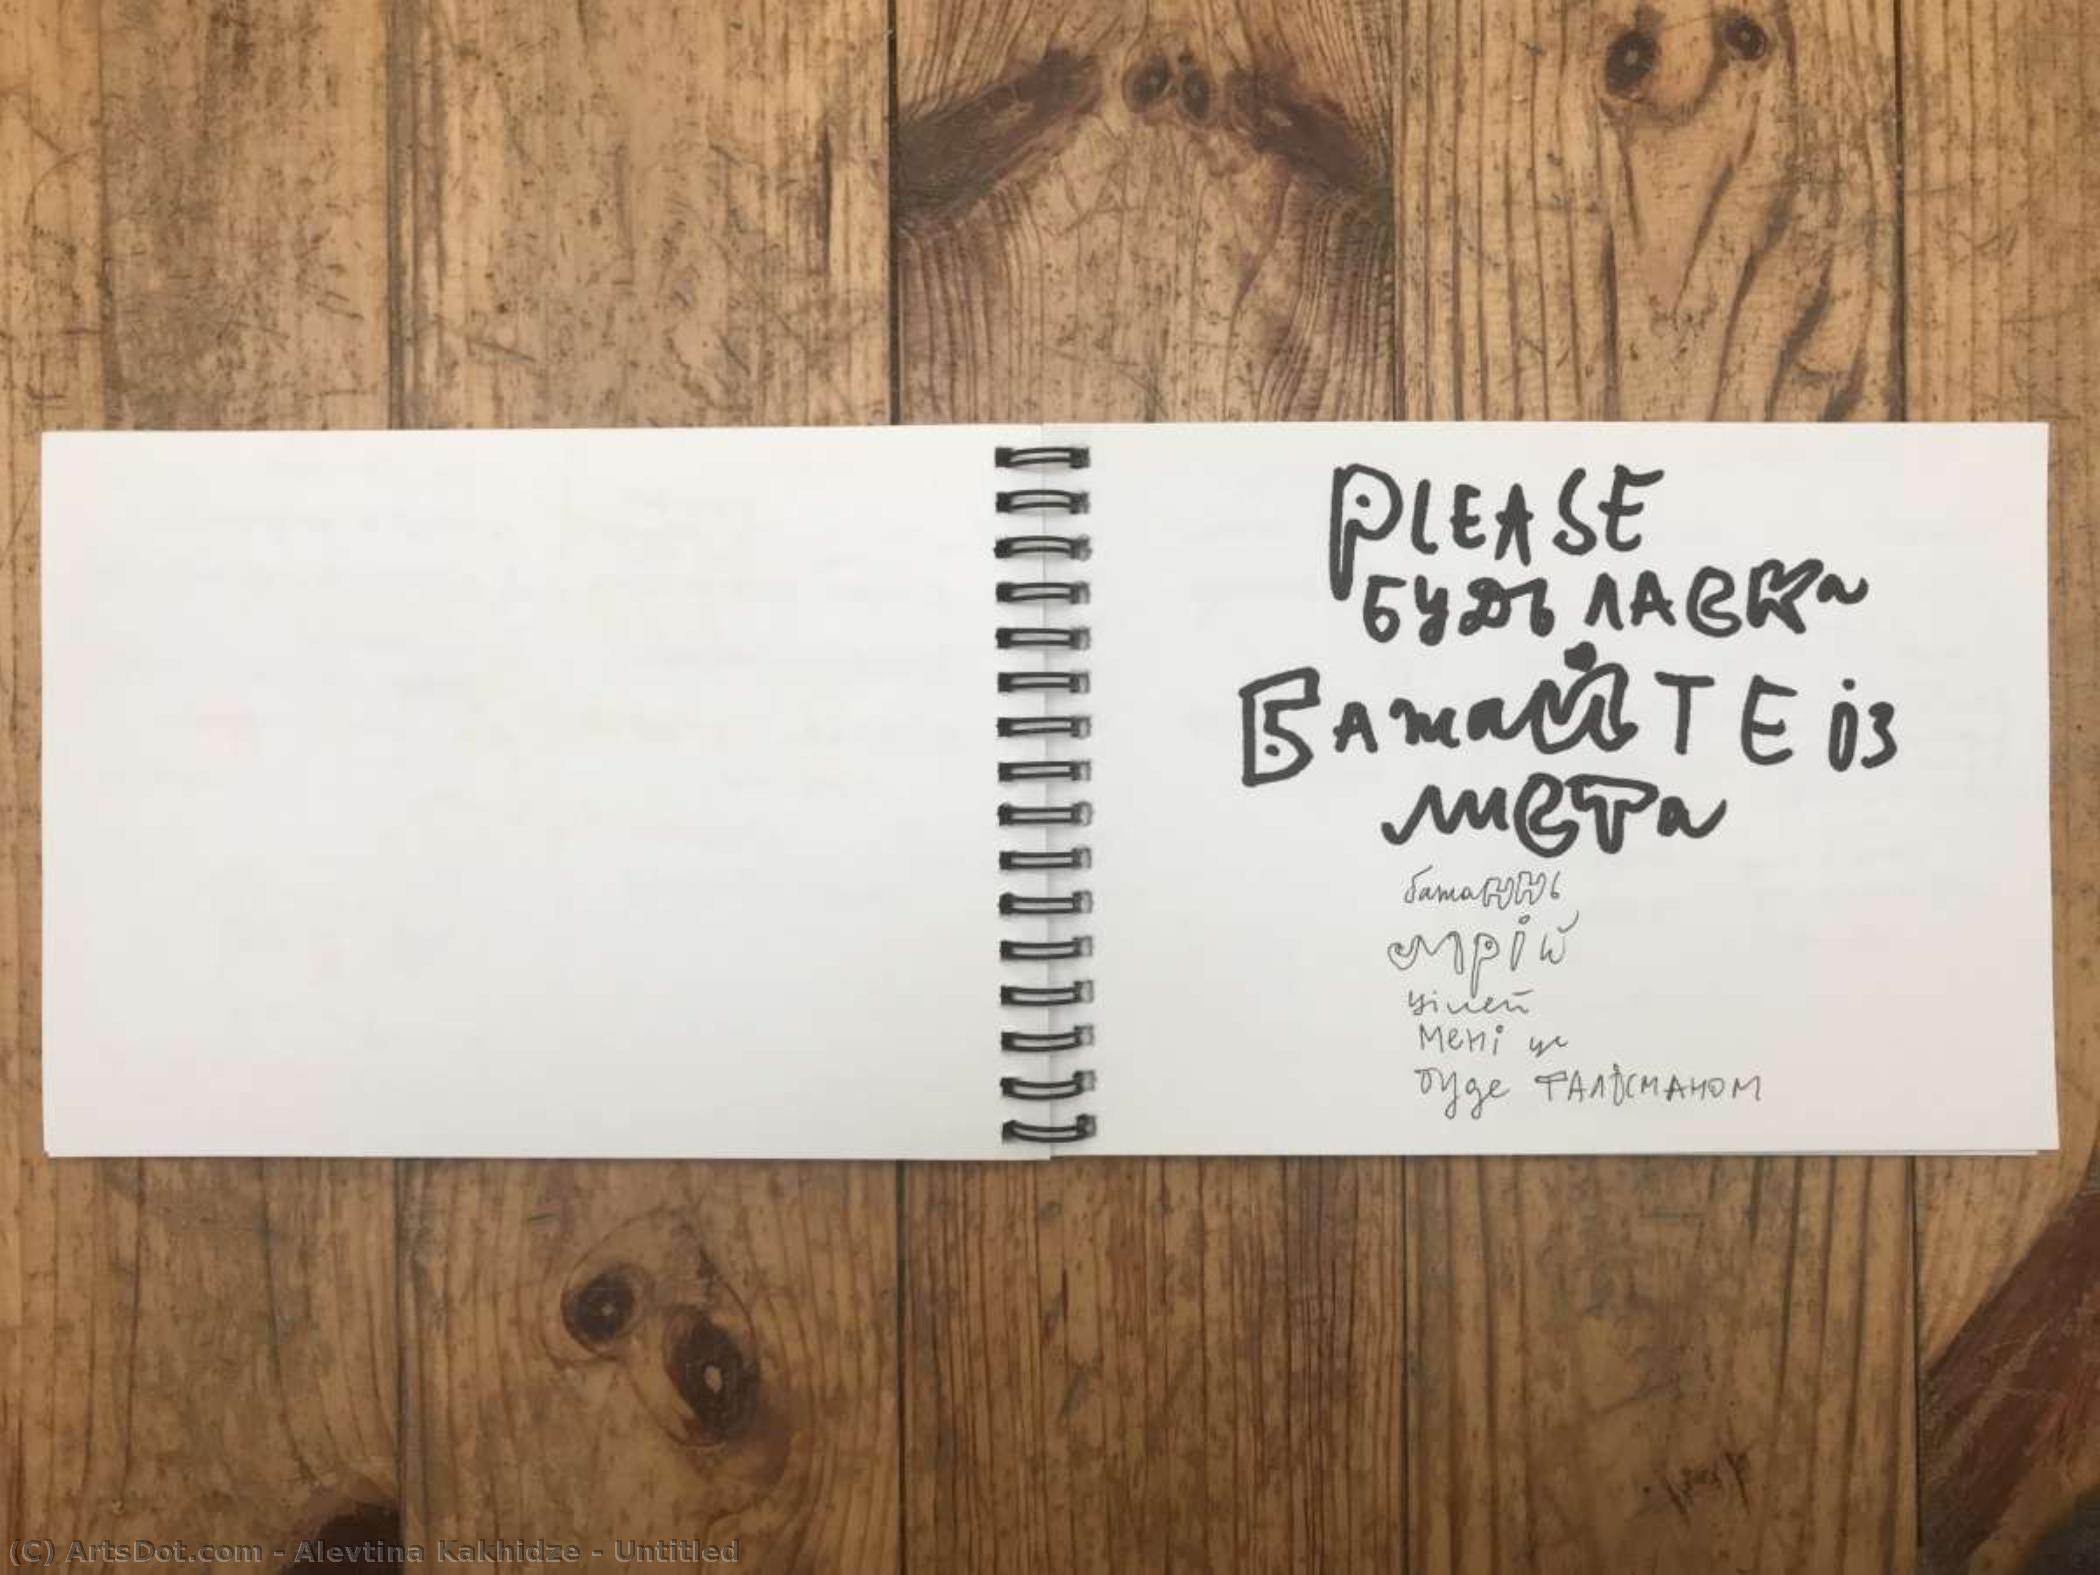 PLEASE
БУДЬ ЛАСКА
БАжайТЕ із
меТа
бажаннь
мрій
цілей
Мені це
буде ТАЛІСМАНОМ
(C) ArtsDot.com - Alevtina Kakhidze - Untitled